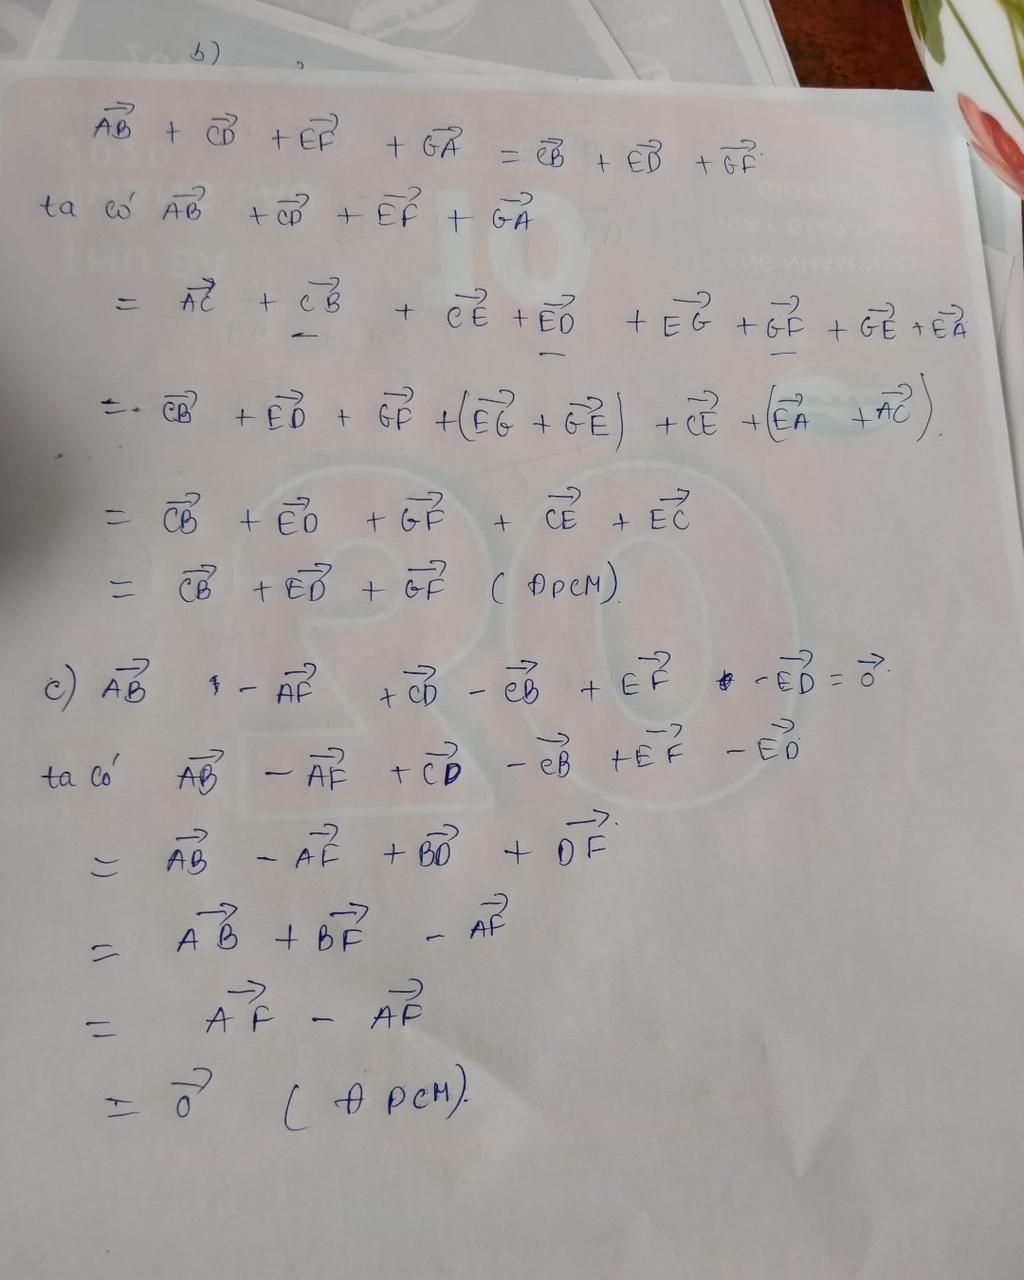 b)
AB⃗ + CD⃗ + EF⃗ + GA⃗ = CB⃗ + ED⃗ + GF⃗.
ta có AB⃗ + CD⃗ + EF⃗ + GA⃗
= AC⃗ + CB⃗ + CE⃗ + ED⃗ + EG⃗ + GF⃗ + GE⃗ + EA⃗
= CB⃗ + ED⃗ + GF⃗ + (EG⃗ + GE⃗) + CE⃗ + (EA⃗ + AC⃗).
= CB⃗ + ED⃗ + GF⃗ + CE⃗ + EC⃗
= CB⃗ + ED⃗ + GF⃗ (ĐPCM).
c) AB⃗ - AF⃗ + CD⃗ - CB⃗ + EF⃗ - ED⃗ = 0⃗.
ta có AB⃗ - AF⃗ + CD⃗ - CB⃗ + EF⃗ - ED⃗
= AB⃗ - AF⃗ + BD⃗ + DF⃗.
= AB⃗ + BF⃗ - AF⃗
= AF⃗ - AF⃗
= 0⃗ (ĐPCM).